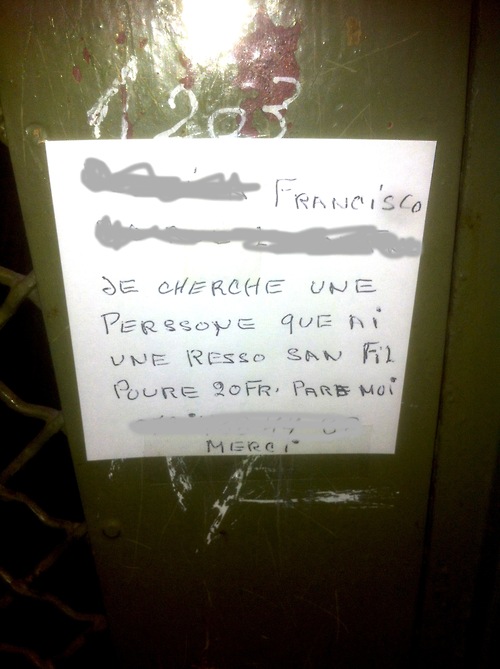 1203
FRANCISCO
JE CHERCHE UNE
PERSSONE QUE AI
UNE RESSO SAN FIL
POURE 20FR. PARE MOI
MERCI